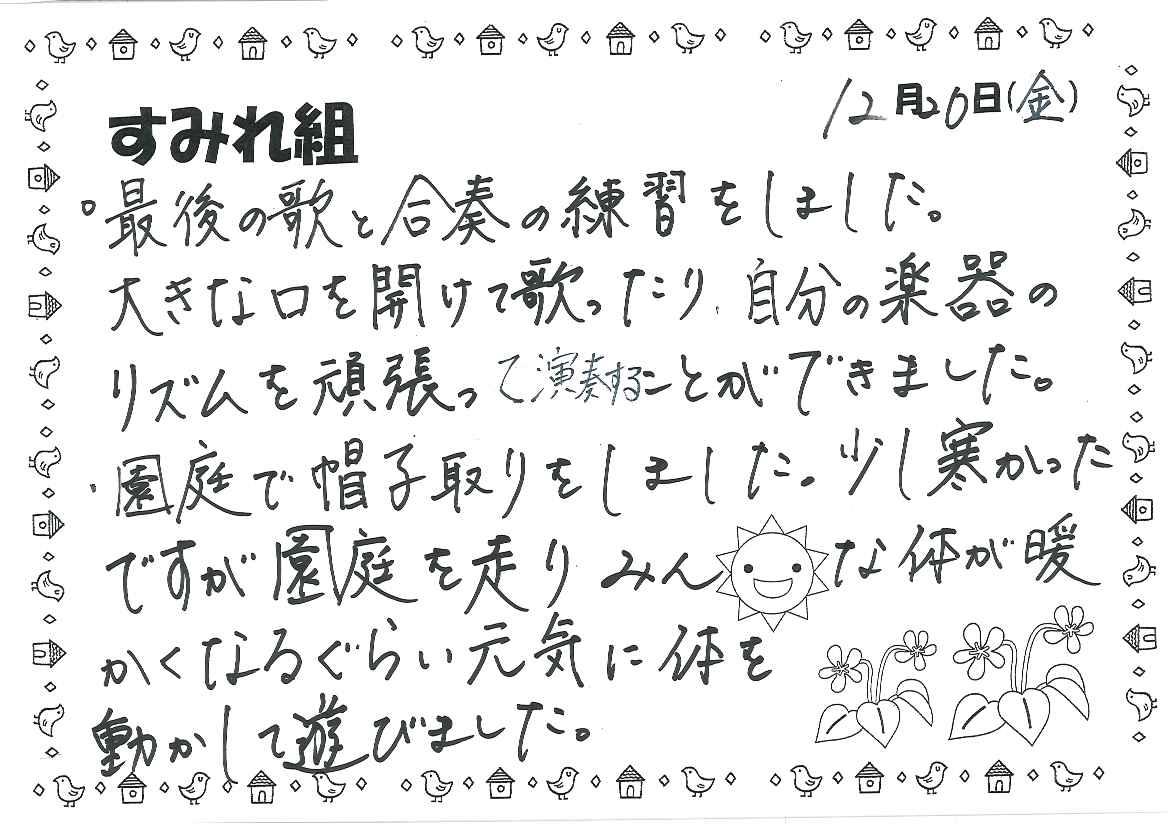 すみれ組
12月20日(金)
。最後の歌と合奏の練習をしました。
大きな口を開けて歌ったり、自分の楽器の
リズムを頑張って演奏することができました。
・園庭で帽子取りをしました。少し寒かった
ですが園庭を走りみんな体が暖
かくなるぐらい元気に体を
動かして遊びました。